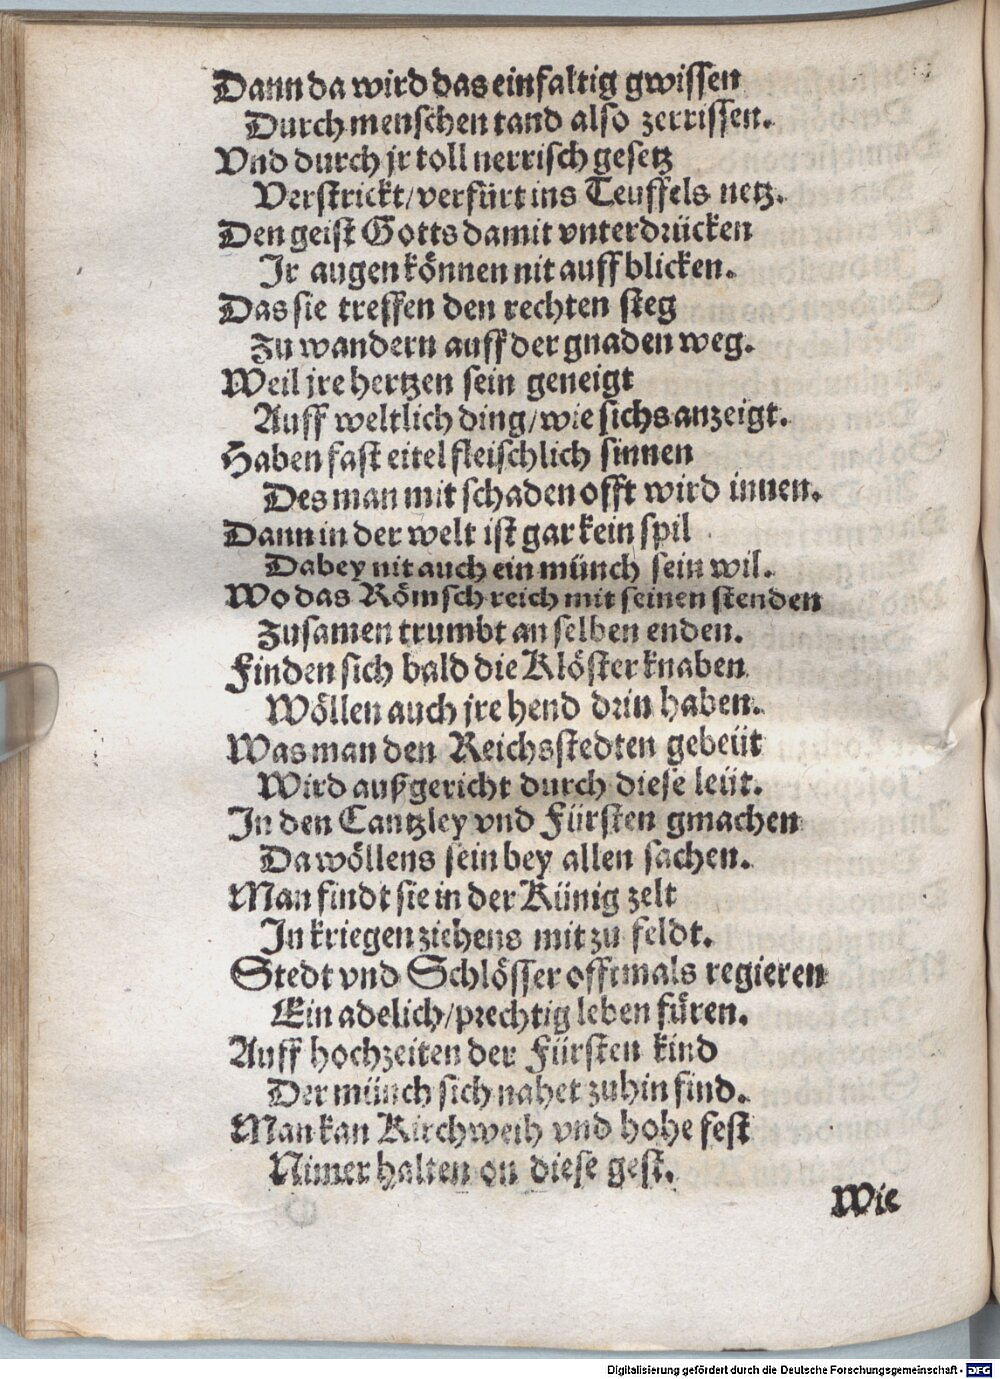 Dann da wird das einfaltig gwissen
Durch menschen tand also zerrissen.
Vnd durch jr toll nerrisch gesetz
Verstrickt/verfürt ins Teuffels netz.
Den geist Gotts damit vnterdrücken
Ir augen können nit auff blicken.
Das sie treffen den rechten steg
Zu wandern auff der gnaden weg.
Weil jre hertzen sein geneigt
Auff weltlich ding/wie sichs anzeigt.
Haben fast eitel fleischlich sinnen
Des man mit schaden offt wird innen.
Dann in der welt ist gar kein spil
Dabey nit auch ein münch sein wil.
Wo das Römsch reich mit seinen stenden
Zusamen kumbt an selben enden.
Finden sich bald die Klöster knaben
Wöllen auch jre hend drin haben.
Was man den Reichsstedten gebeüt
Wird außgericht durch diese leüt.
In den Cantzley vnd Fürsten gmachen
Da wöllens sein bey allen sachen.
Man findt sie in der Künig zelt
In kriegen ziehens mit zu feldt.
Stedt vnd Schlösser offtmals regieren
Ein adelich/prechtig leben füren.
Auff hochzeiten der Fürsten kind
Der münch sich nahet zuhin find.
Man kan Kirchweih vnd hohe fest
Nimer halten on diese gest.
Wie
Digitalisierung gefördert durch die Deutsche Forschungsgemeinschaft - DFG